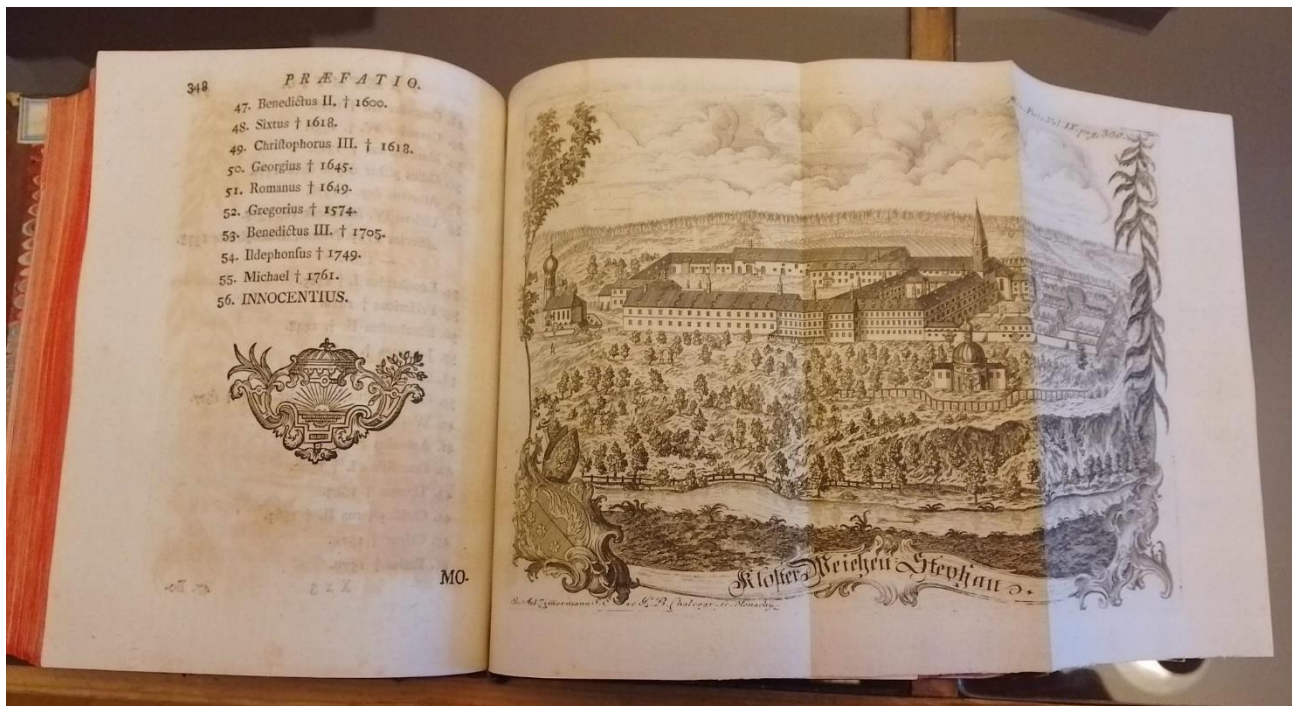 348 PRÆFATIO.
47. Benedictus II. † 1600.
48. Sixtus † 1618.
49. Chriſtophorus III. † 1618.
50. Georgius † 1645.
51. Romanus † 1649.
52. Gregorius † 1574.
53. Benedictus III. † 1705.
54. Ildephonſus † 1749.
55. Michael † 1761.
56. INNOCENTIUS.
MO-
Vol. IX. pag. 350.
Kloster Weichen Stephan.
Monachy